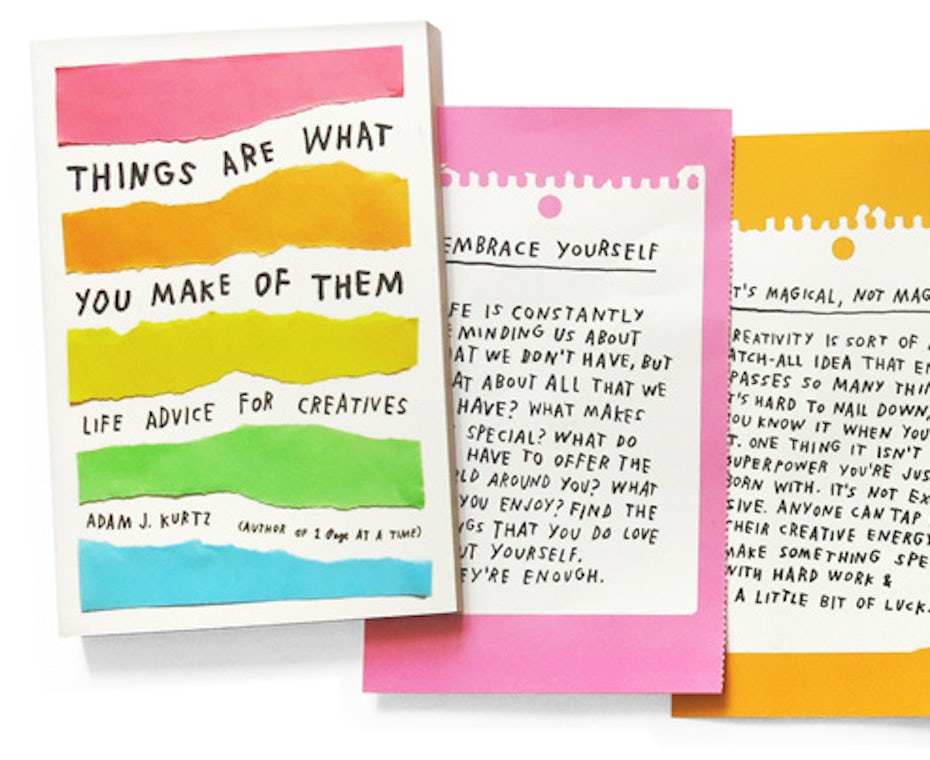 THINGS ARE WHAT
YOU MAKE OF THEM
LIFE ADVICE FOR CREATIVES
ADAM J. KURTZ (AUTHOR OF 1 Page AT A TIME)
EMBRACE YOURSELF
FE IS CONSTANTLY
MINDING US ABOUT
AT WE DON'T HAVE, BUT
AT ABOUT ALL THAT WE
HAVE? WHAT MAKES
SPECIAL? WHAT DO
HAVE TO OFFER THE
LD AROUND YOU? WHAT
YOU ENJOY? FIND THE
GS THAT YOU DO LOVE
UT YOURSELF.
EY'RE ENOUGH.
T'S MAGICAL, NOT MAG
REATIVITY IS SORT OF
ATCH-ALL IDEA THAT EN
PASSES SO MANY THIN
T'S HARD TO NAIL DOWN,
YOU KNOW IT WHEN YOU
T. ONE THING IT ISN'T
SUPERPOWER YOU'RE JUS
BORN WITH. IT'S NOT EX
SIVE. ANYONE CAN TAP
THEIR CREATIVE ENERGY
MAKE SOMETHING SPE
WITH HARD WORK &
A LITTLE BIT OF LUCK.